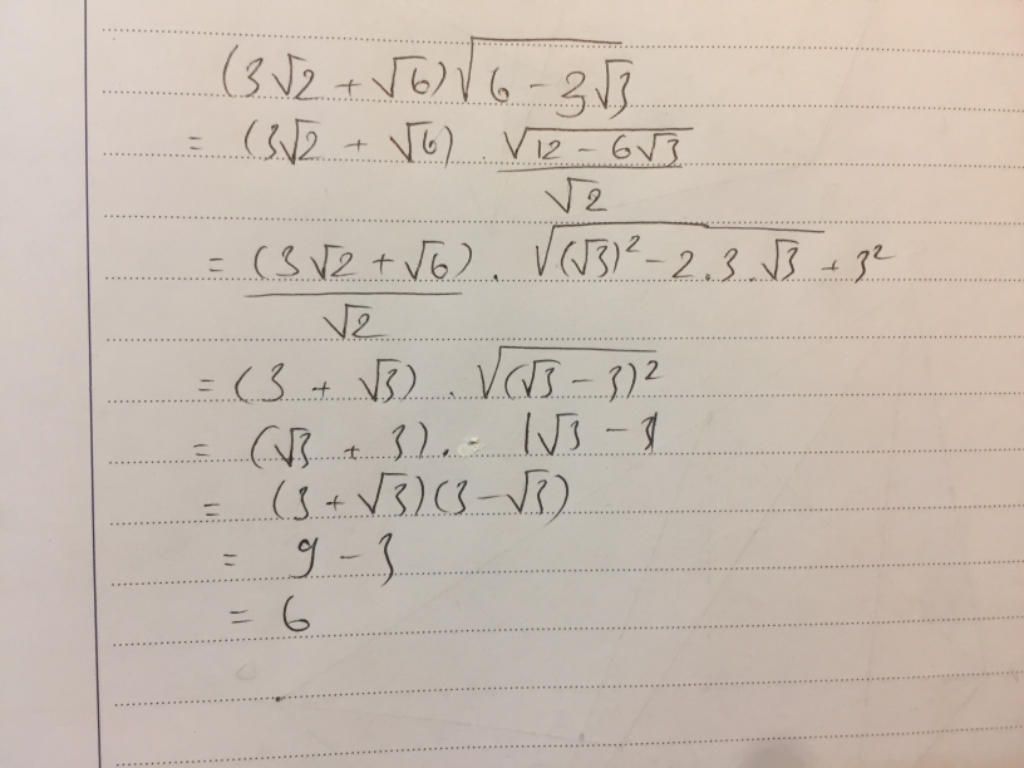 (3√2 + √6)√6 - 3√3
= (3√2 + √6) . √12 - 6√3 / √2
= (3√2 + √6) / √2 . √(√3)² - 2.3.√3 + 3²
= (3 + √3) . √(√3 - 3)²
= (√3 + 3). |√3 - 3|
= (3 + √3)(3 - √3)
= 9 - 3
= 6